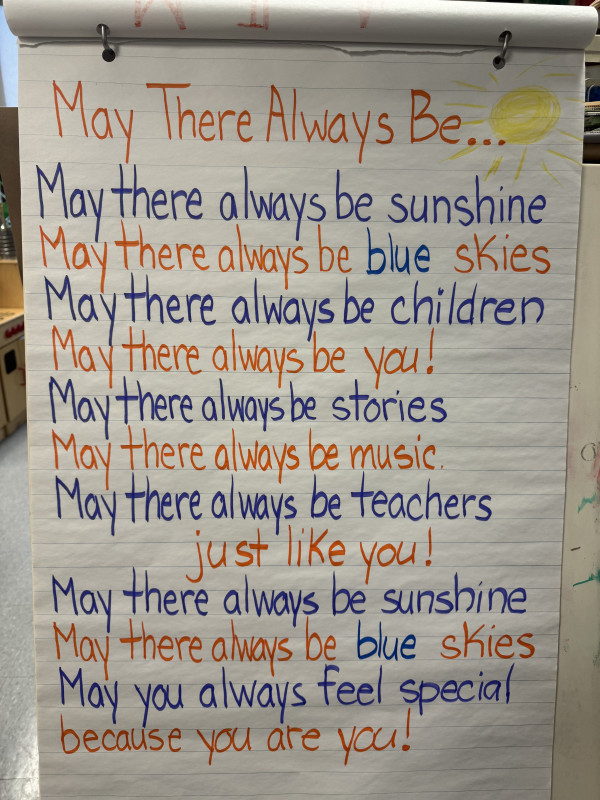 May There Always Be...
May there always be sunshine
May there always be blue skies
May there always be children
May there always be you!
May there always be stories
May there always be music.
May there always be teachers
just like you!
May there always be sunshine
May there always be blue skies
May you always feel special
because you are you!